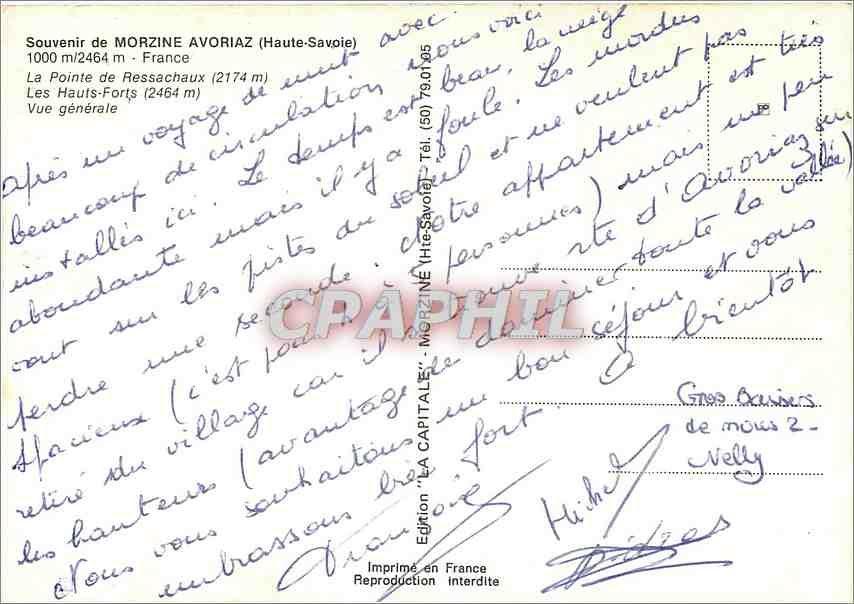 Souvenir de MORZINE AVORIAZ (Haute-Savoie)
1000 m/2464 m - France
La Pointe de Ressachaux (2174 m)
Les Hauts-Forts (2464 m)
Vue générale
Après un voyage de nuit avec
beaucoup de circulation nous voici
installés ici. Le temps est beau, la neige
abondante mais il y a foule. Les mordus
sont sur les pistes du soleil et ne veulent pas
perdre une seconde. Notre appartement est très
spacieux (c'est pour personnes) mais un peu
retiré du village car il se trouve rte d'Avoriaz sur
les hauteurs (avantage de dominer toute la vallée)
Nous vous souhaitons un bon séjour et vous
embrassons bien fort. A bientôt
Françoise
Michel
Gros Baisers
de nous 2 -
Nelly
Edition "LA CAPITALE" - MORZINE (Hte-Savoie) - Tél. (50) 79.01.05
CPAPHIL
Imprimé en France
Reproduction interdite